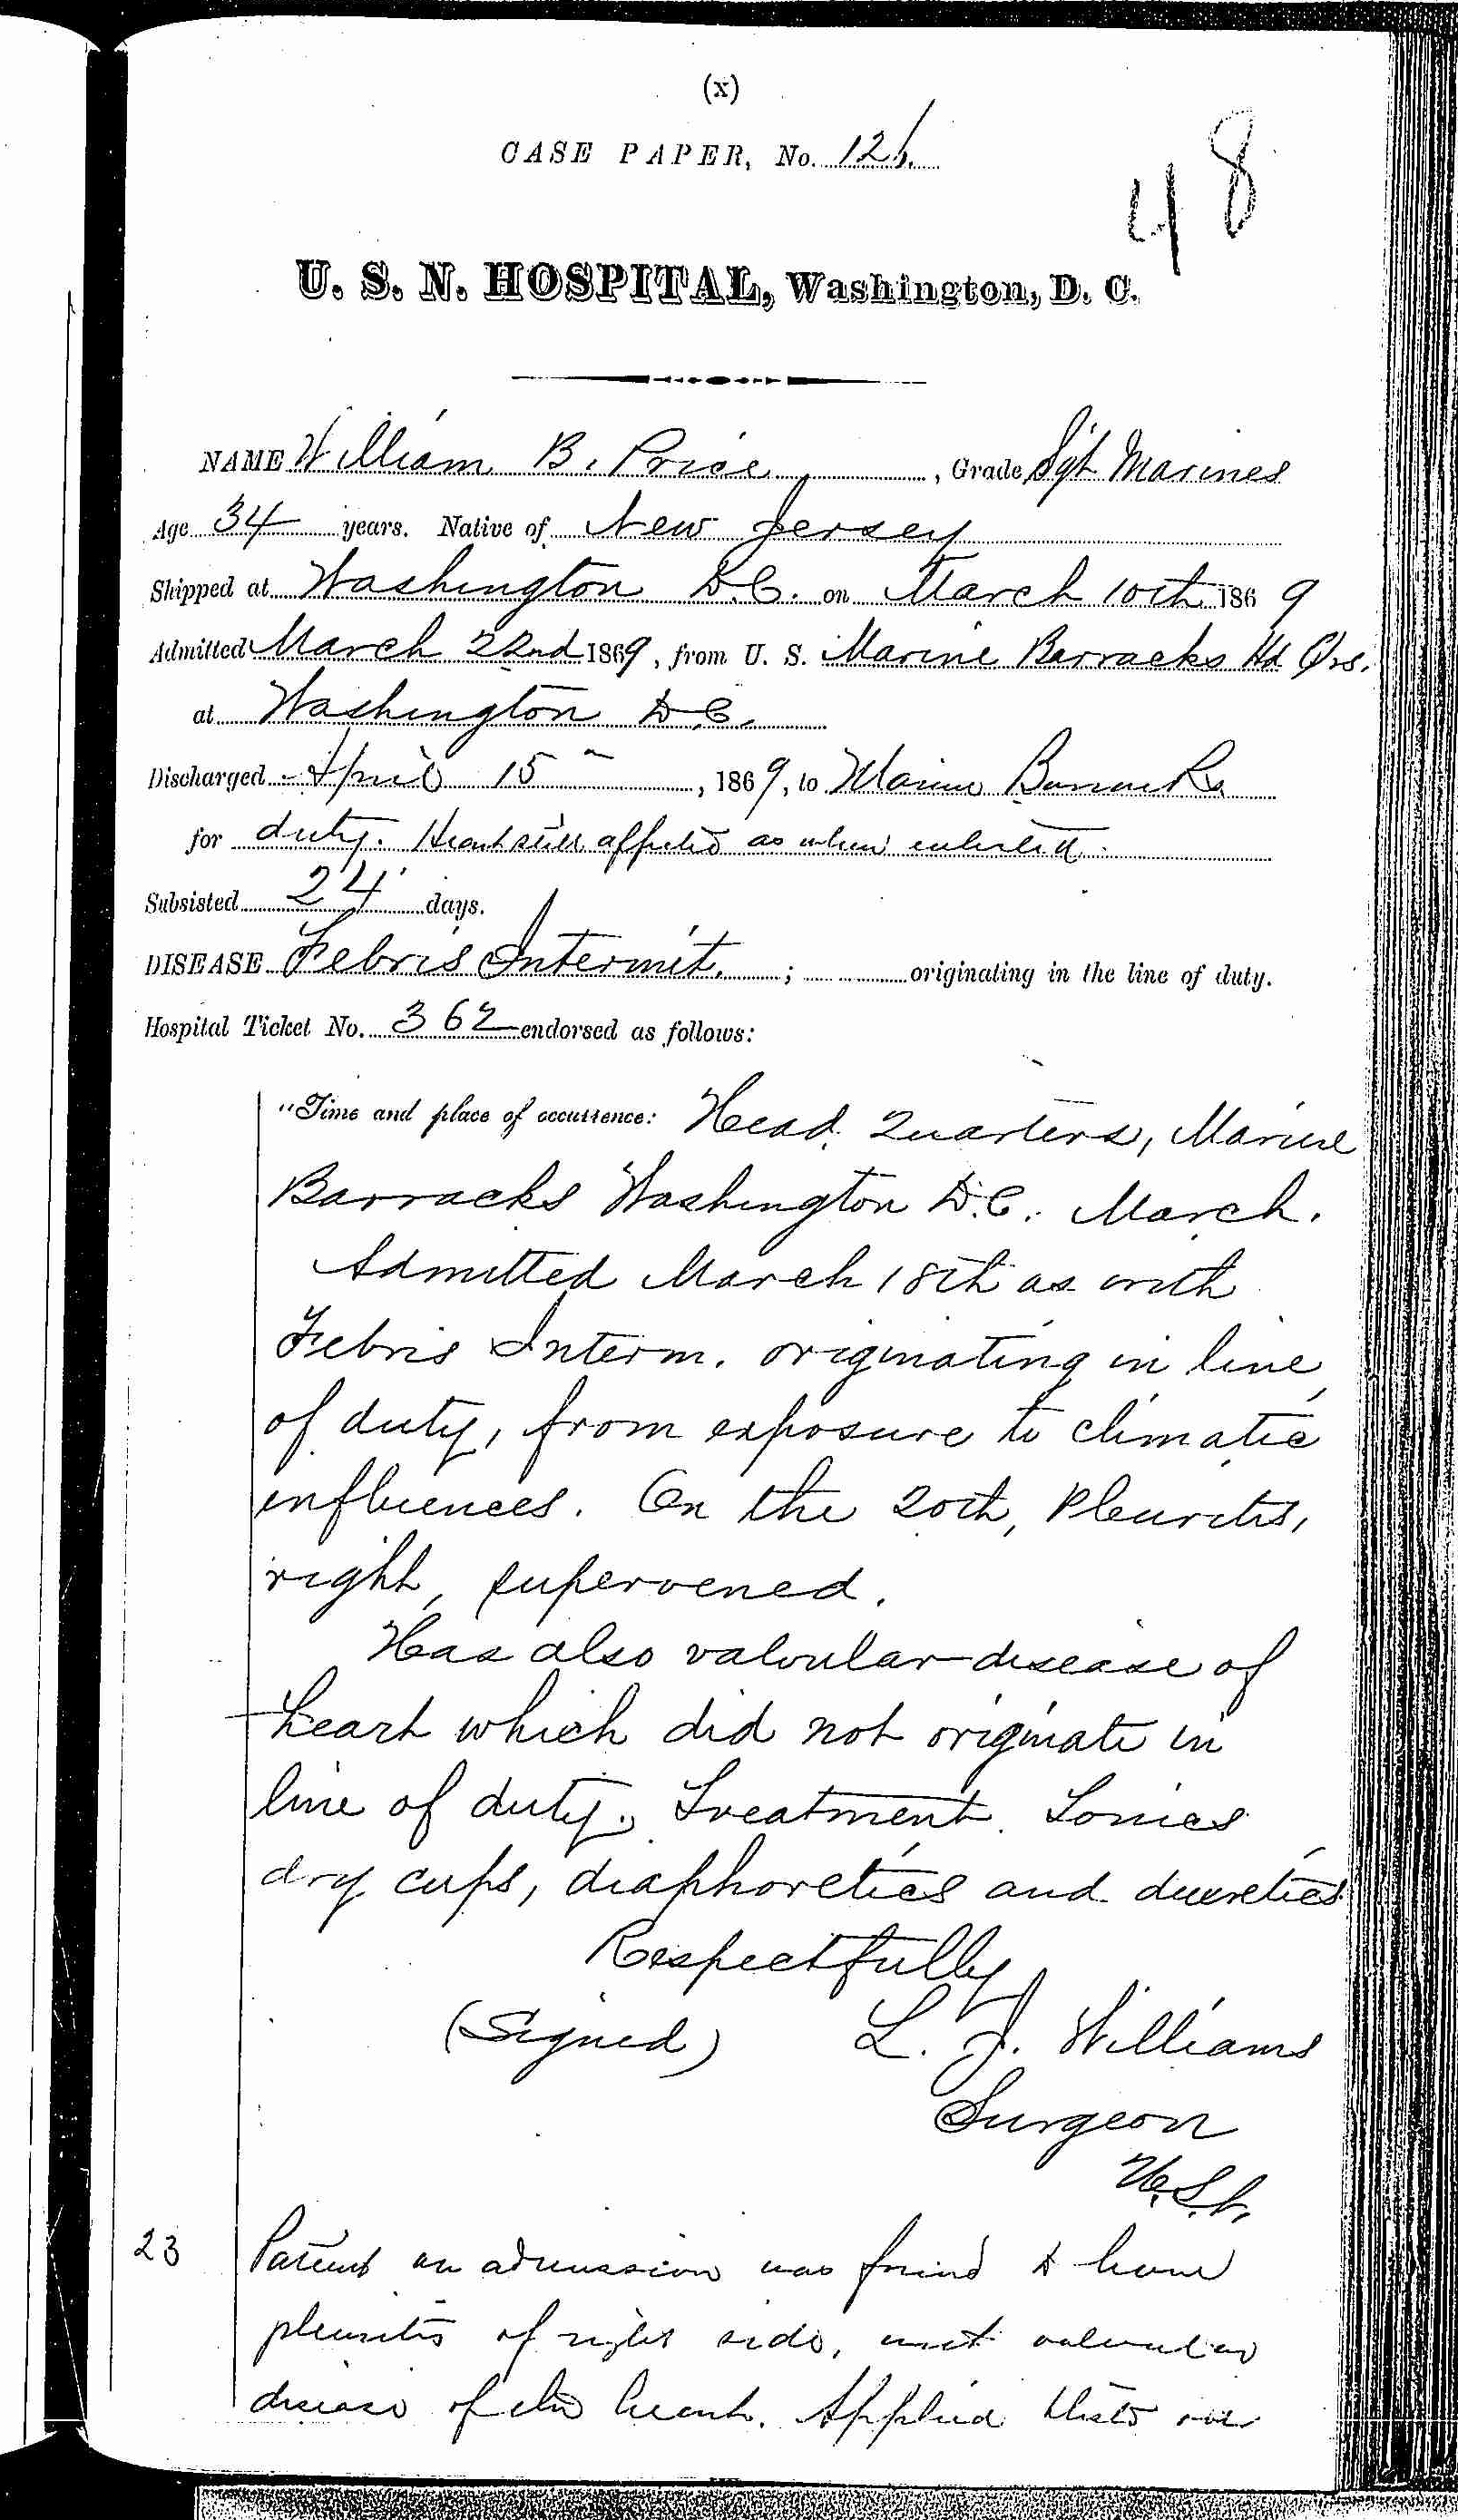 (x)
CASE PAPER, No. 126.
48
U. S. N. HOSPITAL, Washington, D. C.
NAME William B. Price, Grade Sgt Marines
Age 34 years. Native of New Jersey
Shipped at Washington D.C. on March 10th 1869
Admitted March 22nd 1869, from U. S. Marine Barracks Hd Qrs.
at Washington D.C.
Discharged April 15, 1869, to Marine Barracks
for duty. Heart still affected as when enlisted.
Subsisted 24 days.
DISEASE Febris Intermit. ; originating in the line of duty.
Hospital Ticket No. 362 endorsed as follows:
"Time and place of occurrence: Head Quarters, Marine
Barracks Washington D.C. March.
Admitted March 18th as with
Febris Interm. originating in line
of duty, from exposure to climatic
influences. On the 20th, Pleuritis,
right, supervened.
Has also valvular disease of
heart which did not originate in
line of duty. Treatment. Tonics
dry cups, diaphoretics and diuretics
Respectfully
(Signed) L. J. Williams
Surgeon
U.S.N.
23 Patient on admission was found to have
pleuritis of right side, with valvular
disease of the heart. Applied